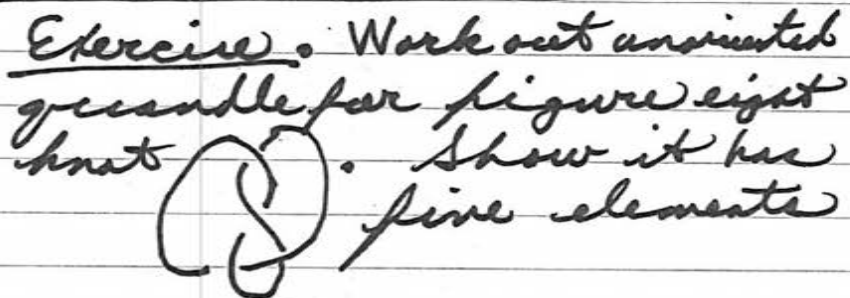 Exercise. Work out unoriented
quandle for figure eight
knot . Show it has
five elements